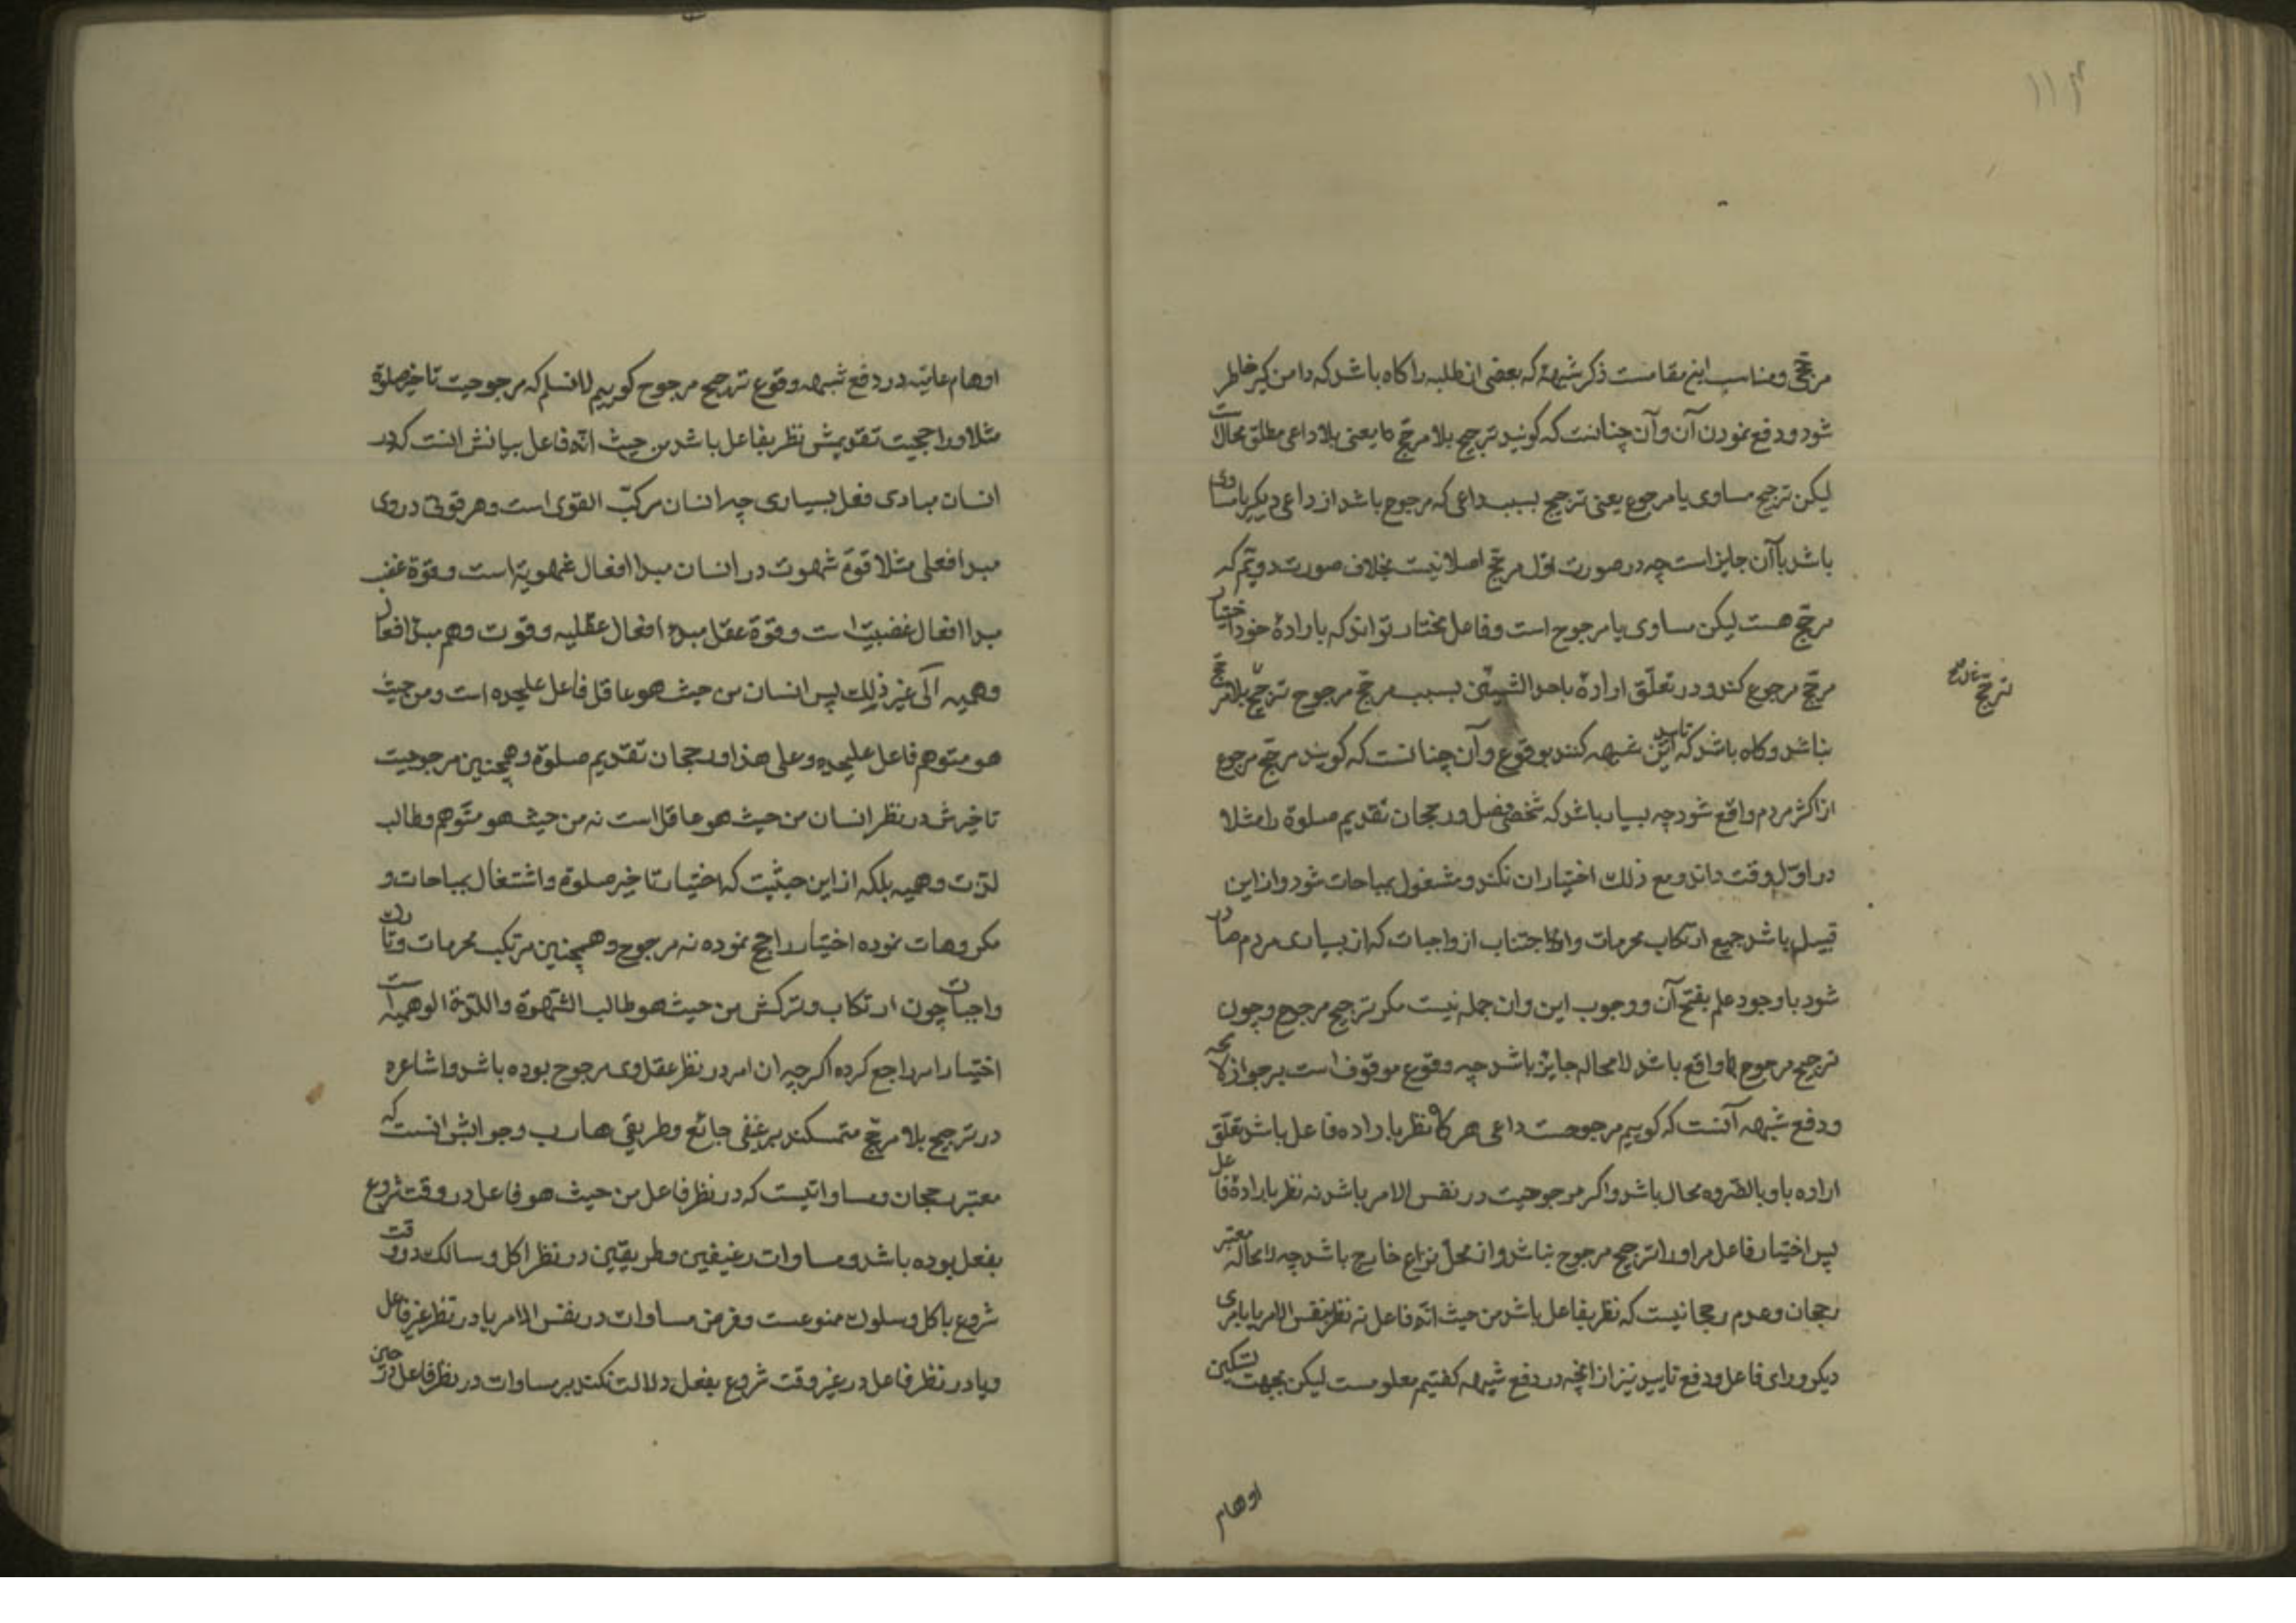 ۱۱۴
مرجّح و مناسب این مقامست ذکر شبهۀ که بعضی از طلبه را کاه باشد که دامن کیر خاطر
شود و دفع نمودن آن و آن چنانست که کویند ترجیح بلا مرجّح یعنی بلا داعی مطلق محالست
لیکن ترجیح مساوی یا مرجوح یعنی ترجیح بسبب داعی که مرجوح باشد از داعی دیکر یا مساوی
باشد با آن جایز است چه در صورت اوّل مرجّح اصلا نیست بخلاف صورت دویّم که
مرجّح هست لیکن مساوی یا مرجوح است و فاعل مختار تواند که بارادۀ خود اختیار
مرجّح مرجوح کند و در تعلّق ارادۀ باحد الشیئین بسبب مرجّح مرجوح ترجیّح بلا مرجّح
نباشد و کاه باشد که تایید این شبهه کنند بوقوع و آن چنانست که کویند مرجّح مرجوح
از اکثر مردم واقع شود چه بسیار باشد که شخصی فضل و رجحان تقدیم صلوة را مثلا
در اوّل وقت داند و مع ذلک اختیار ان نکند و مشغول بمباحات شود و از این
قبیل باشد جمیع ارتکاب محرمات و اجتناب از واجبات که از بسیاری مردم صادر
شود با وجود علم بقبح آن و وجوب این و ان جمله نیست مکر ترجیح مرجوح و چون
ترجیح مرجوح واقع باشد لا محاله جایز باشد چه وقوع موقوف است بر جواز لا محاله
و دفع شبهه آنست که کوییم مرجوحیت داعی هر کاه نظر باراده فاعل باشد تعلّق
اراده باو بالضّروره محال باشد و اکر مرجوحیت در نفس الامر باشد نه نظر بارادۀ فاعل
پس اختیار فاعل مر او را ترجیح مرجوح نباشد و از محلّ نزاع خارج باشد چه لا محاله معتبر
رجحان و عدم رجحانیست که نظر بفاعل باشد من حیث انّه فاعل نه نظر بنفس الامر یا بامری
دیکر ورای فاعل و دفع تایید نیز از انچه در دفع شبهه کفتیم معلومست لیکن بجهت تسکین
اوهام
ترجّح
اوهام عامّیه در دفع شبهه وقوع ترجیح مرجوح کوییم لا نسلم که مرجوحیت تاخیر صلوة
مثلا و راجحیت تقدیمش نظر بفاعل باشد من حیث انّه فاعل بیانش انست که در
انسان مبادی فعل بسیاری چه انسان مرکّب القوی است و هر قوتی در وی
مبدا فعلی مثلا قوّۀ شهوت در انسان مبدا افعال شهویّه است و قوّة غضب
مبدا افعال غضبیّه است و قوّة عقل مبدء افعال عقلیه و قوت وهم مبدا افعال
وهمیه الی غیر ذلک پس انسان من حیث هو عاقل فاعل علیحده است و من حیث
هو متوهم فاعل علیحده و علی هذا و رجحان تقدیم صلوة و همچنین مرجوحیت
تاخیرش در نظر انسان من حیث هو عاقل است نه من حیث هو متوهم و طالب
لذّت وهمیه بلکه از این حیثیت که اختیار تاخیر صلوة و اشتغال بمباحات و
مکروهات نموده اختیار راجح نموده نه مرجوح و همچنین مرتکب محرمات و تارک
واجبات چون ارتکاب و ترکش من حیث هو طالب الشهوة و اللذّة الوهمیه است
اختیار امر راجح کرده اکر چه ان امر در نظر عقل وی مرجوح بوده باشد و اشاعره
در ترجیح بلا مرجّح متمسکند برغیفی جائع و طریقی هارب و جوابش انست که
معتبر رجحان و مساواتیست که در نظر فاعل من حیث هو فاعل در وقت شروع
بفعل بوده باشد و مساوات رغیفین و طریقین در نظر اکل و سالک در وقت
شروع باکل و سلوک ممنوعست و فرض مساوات در نفس الامر یا در نظر غیر فاعل
و یا در نظر فاعل در غیر وقت شروع بفعل دلالت نکند بر مساوات در نظر فاعل در حین